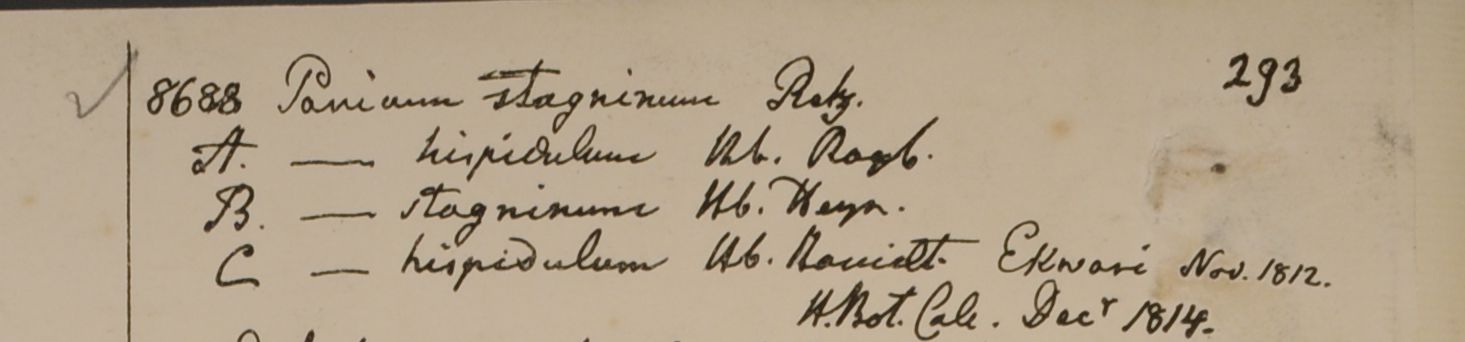 8688 Panicum stagninum Retz. 293
A. — hispidulum Hb. Roxb.
B. — stagninum Hb. Heyn.
C — hispidulum Hb. Ekwari Nov. 1812.
H. Bot. Calc. Decr 1814.